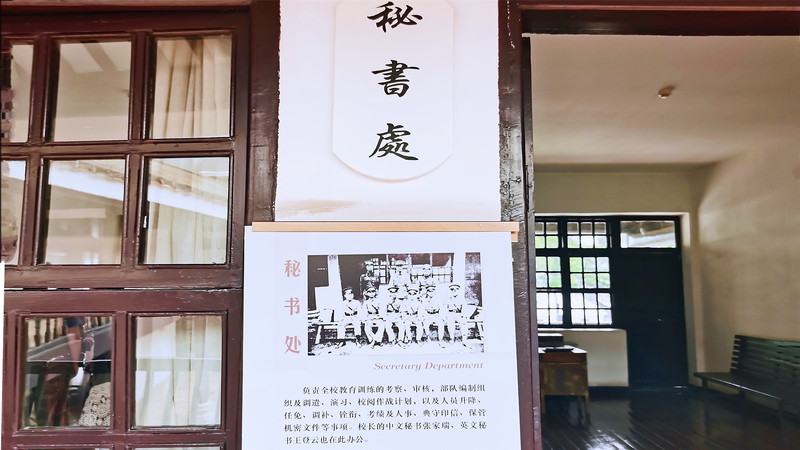 秘書處
秘书处
Secretary Department
负责全校教育训练的考察、审核，部队编制组
织及调遣、演习、校阅作战计划，以及人员升降、
任免、调补、铨衔、考绩及人事、典守印信、保管
机密文件等事项。校长的中文秘书张家瑞、英文秘
书王登云也在此办公。